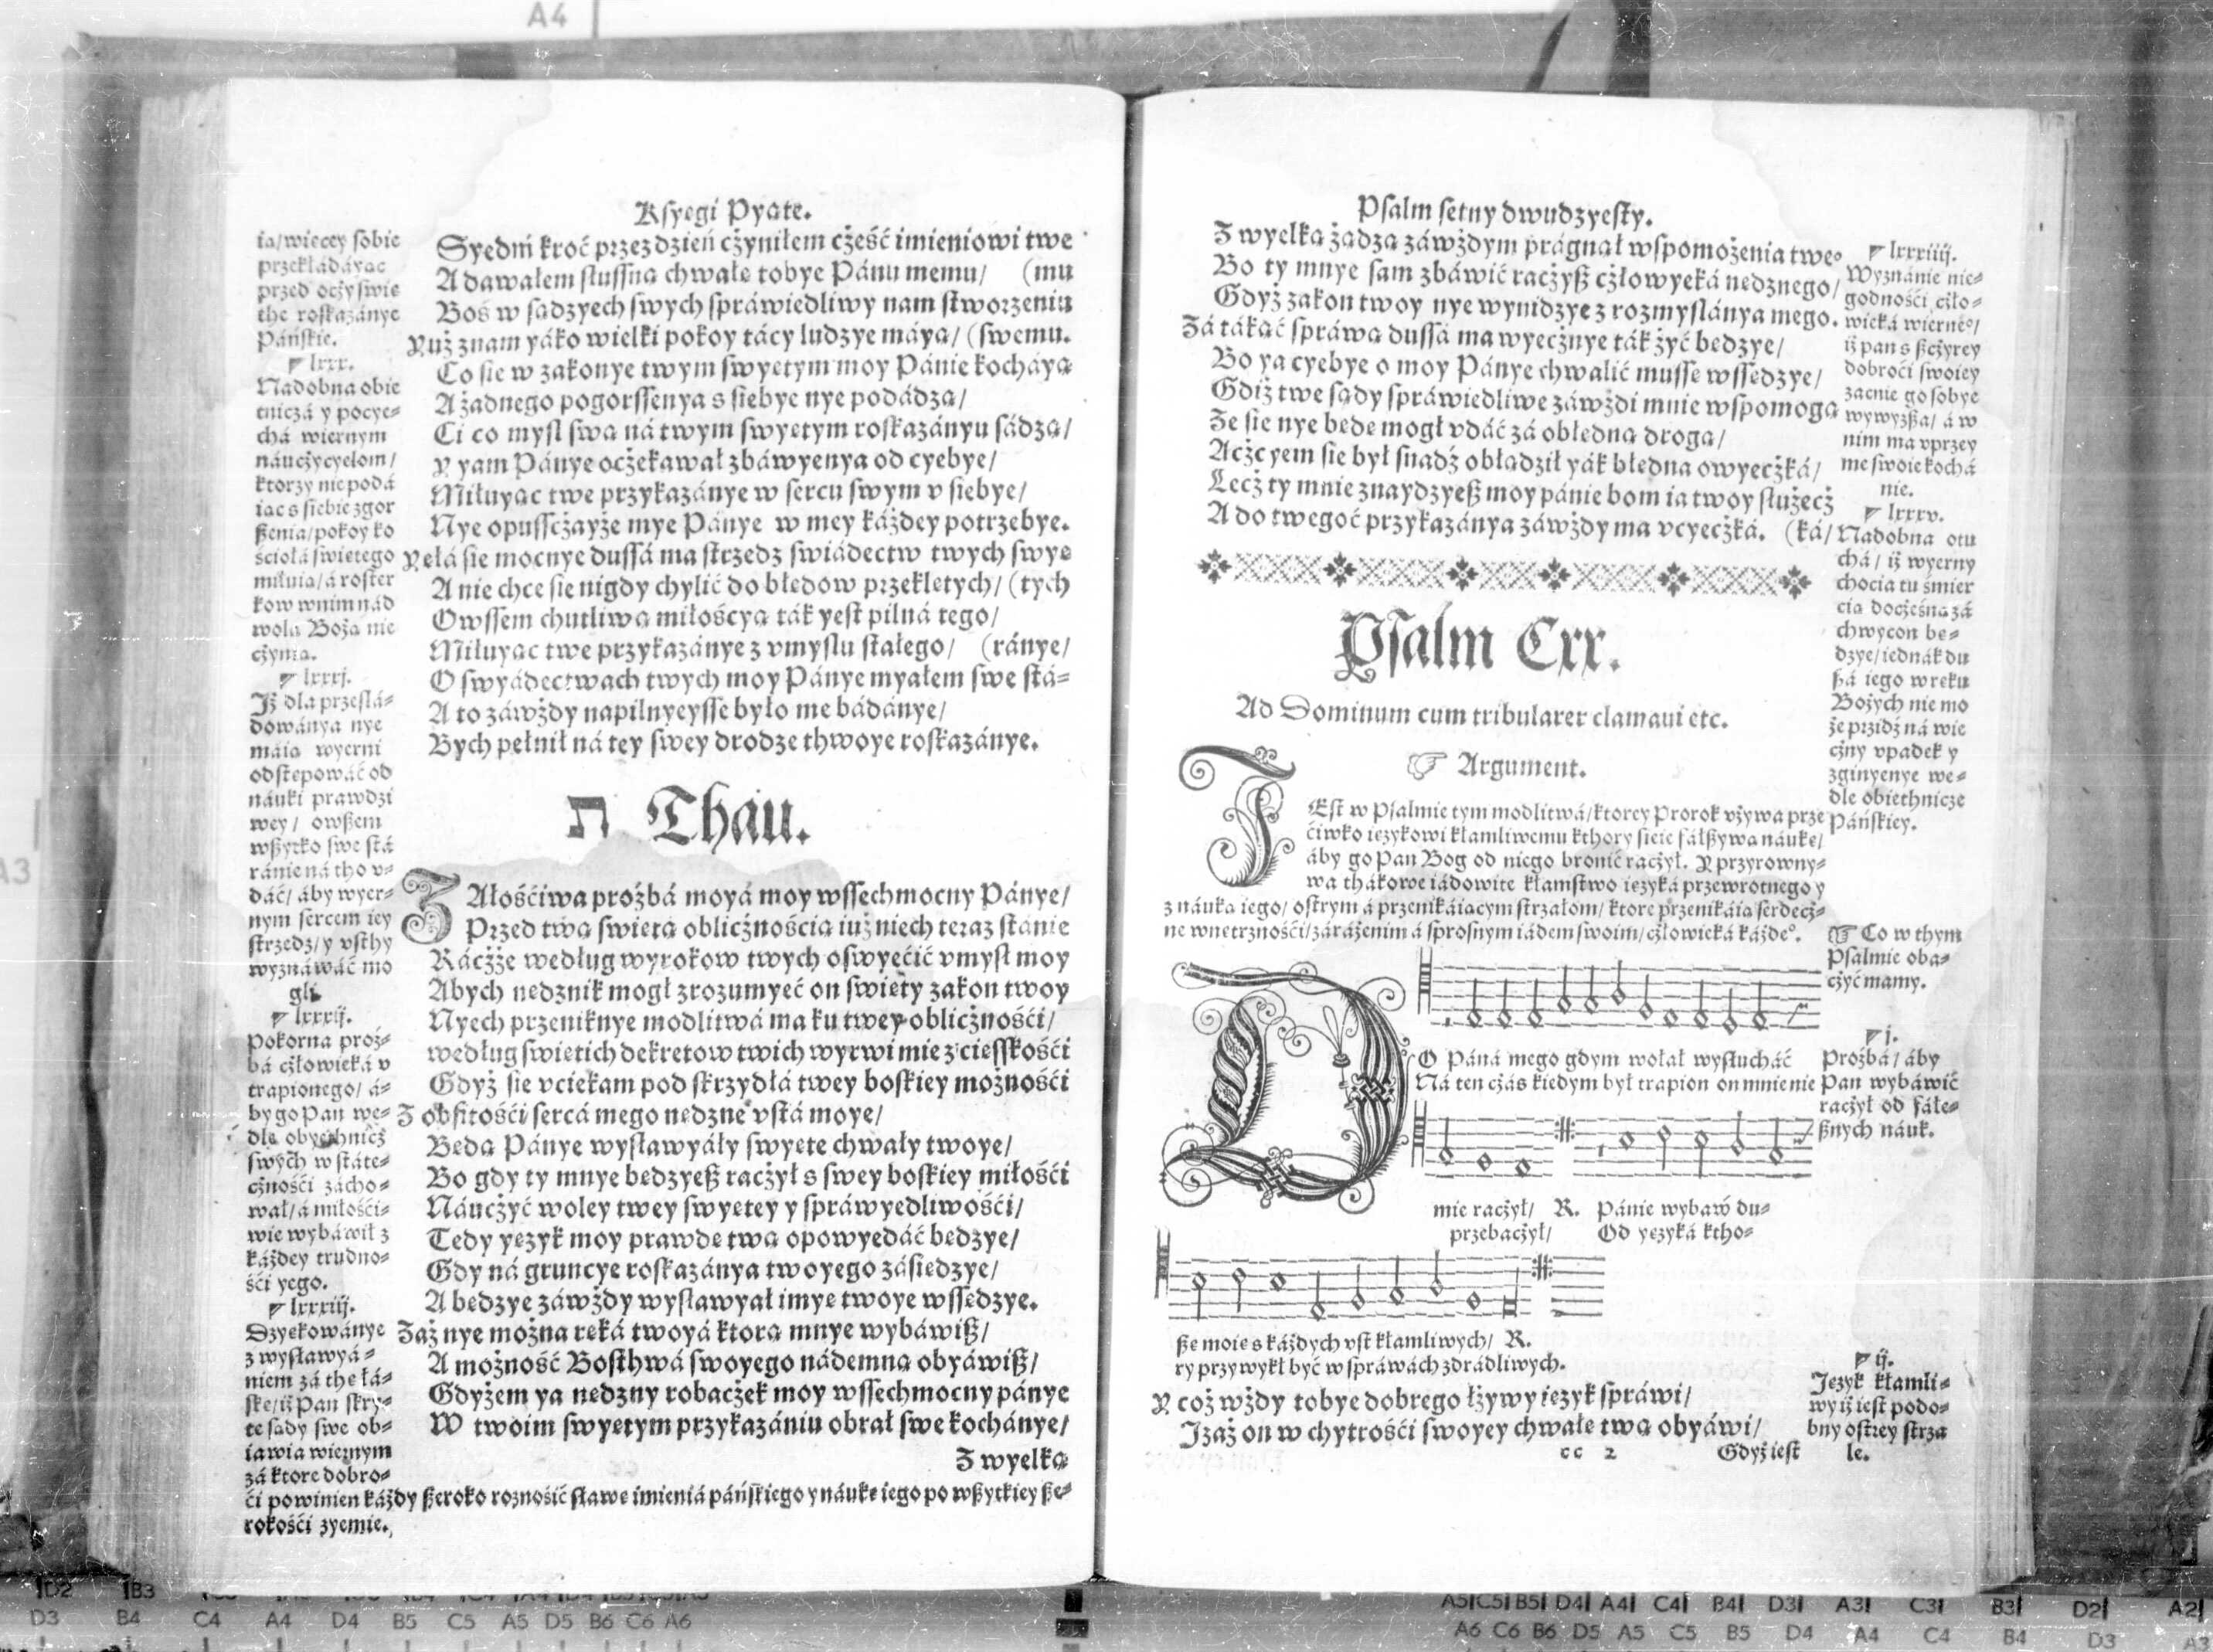 A4
Ksyęgi Pyąte.
ia/więcey sobie
przekłádáyąc
przed oczy swię
the roskazánye
Páńskie.
lxxx.
Nadobna obie
tniczá y pocye-
chá wiernym
náuczycyelom/
ktorzy nie podá
iąc s siebie zgor
ßenia/pokoy ko
ścioła świętego
miłuią/á roster
kow w nim nád
wolą Bożą nie
czynią.
lxxxj.
Iż dla prześlá-
dowánya nye
máią wyerni
odstępowáć od
náuki prawdzi
wey/ owßem
wßytko swe stá
ránie ná tho v-
dáć/ áby wyer-
nym sercem iey
strzedz/y vsthy
wyznáwáć mo
gli.
lxxxij.
Pokorna proź-
bá człowieká v
trapionego/ á-
by go Pan we-
dle obyethnicz
swych w státe-
czności zácho-
wał/á miłości-
wie wybáwił z
káżdey trudno-
ści yego.
lxxxiij.
Dzyękowánye
z wysławyá-
niem zá the łá-
skę/iż Pan skry-
te sądy swe ob-
iawia wiernym
zá ktore dobro-
ci powinien káżdy ßeroko roznosić sławę imieniá páńskiego y náukę iego po wßytkiey ße-
rokości zyemie.
Syedm kroć przez dzień czyniłem cześć imieniowi twe
A dawałem słussną chwałę tobye Pánu memu/ (mu
Boś w sądzyech swych spráwiedliwy nam stworzeniu
Yuż znam yáko wielki pokoy tácy ludzye máyą/ (swemu.
Co się w zakonye twym swyętym moy Pánie kocháyą
A żadnego pogorssenya s siebye nye podádzą/
Ci co mysl swą ná twym swyętym roskazányu sádzą/
Y yam Pánye oczekawał zbáwyenya od cyebye/
Miłuyąc twe przykazánye w sercu swym v siebye/
Nye opussczayże mye Pánye w mey káżdey potrzebye.
Yełá się mocnye dussá ma strzedz swiádectw twych swyę
A nie chce się nigdy chylić do błędow przeklętych/ (tych
Owssem chutliwą miłoscyą ták yest pilná tego/
Miłuyąc twe przykazánye z vmysłu stałego/ (ránye/
O swyádectwach twych moy Pánye myałem swe stá-
A to záwżdy napilnyeysse było me bádánye/
Bych pełnił ná tey swey drodze thwoye roskazánye.
ת Thau.
ZAłościwa proźbá moyá moy wssechmocny Pánye/
Przed twą swiętą oblicznością iuż niech teraz stánie
Ráczże według wyrokow twych oswyecić vmysł moy
Abych nędznik mogł zrozumyeć on swięty zakon twoy
Nyech przeniknye modlitwá ma ku twey oblicznośći/
według swiętich dekretow twich wyrwi mię z ciesskośći
Gdyż się vciekam pod skrzydłá twey boskiey możnośći
Z obfitośći sercá mego nędzne vstá moye/
Będą Pánye wysławyáły swyęte chwały twoye/
Bo gdy ty mnye będzyeß raczył s swey boskiey miłośći
Náuczyć woley twey swyętey y spráwyedliwośći/
Tedy yęzyk moy prawdę twą opowyedáć będzye/
Gdy ná gruncye roskazánya twoyego zásiędzye/
A będzye záwżdy wysławyał imye twoye wssędzye.
Zaż nye można ręká twoyá ktorą mnye wybáwiß/
A możność Bosthwá swoyego nádemną obyáwiß/
Gdyżem ya nędzny robaczek moy wssechmocny pánye
W twoim swyętym przykazániu obrał swe kochánye/
Z wyelką
Psalm setny dwudzyesty.
Z wyelką żądzą záwżdym prágnął wspomożenia tweº
Bo ty mnye sam zbáwić raczyß człowyeká nędznego/
Gdyż zakon twoy nye wynidzye z rozmyslánya mego.
Zá tákąć spráwą dussá ma wyecznye ták żyć będzye/
Bo ya cyebye o moy Pánye chwalić mussę wssędzye/
Gdiż twe sądy spráwiedliwe záwżdi mnie wspomogą
Że się nye będę mogł vdáć zá obłędną drogą/
Aczcyem się był snadź obłądził yák błędna owyeczká/
Lecz ty mnie znaydzyeß moy pánie bom ia twoy służecz
A do twegoć przykazánya záwżdy ma vcyeczká. (ká/
lxxxiiij.
Wyznánie nie-
godności czło-
wieká wiernéº/
iż pan s ßczyrey
dobroći swoiey
zacnie go sobye
wywyżßa/ á w
nim ma vprzey
me swoie kochá
nie.
lxxxv.
Nadobna otu
chá/ iż wyerny
chocia tu śmier
cią doczesną zá
chwycon bę-
dzye/iednák du
ßá iego w ręku
Bożych nie mo
że przidź ná wie
czny vpadek y
zginyenye we-
dle obiethnicze
Páńskiey.
Psalm Cxx.
Ad Dominum cum tribularer clamaui etc.
Argument.
IEst w Psalmie tym modlitwá/ktorey Prorok vżywa prze
ciwko ięzykowi kłamliwemu kthory sieie fálßywą náukę/
áby go Pan Bog od niego bronić raczył. Y przyrowny-
wa thákowe iádowite kłamstwo ięzyká przewrotnego y
z náuką iego/ ostrym á przenikáiącym strzałom/ ktore przenikáią serdecz-
ne wnętrzności/záráżenim á sprosnym iádem swoim/człowieká káżdeº.
Co w thym
Psalmie oba-
czyć mamy.
DO Páná mego gdym wołał wysłucháć
Ná ten czás kiedym był trapion on mnie nie
j.
Proźbá/ áby
Pan wybáwić
raczył od fáłe-
ßnych náuk.
mię raczył/ R. Pánie wybaẃ du-
przebaczył/ Od yęzyká ktho-
ßę moię s káżdych vst kłamliwych/ R.
ry przywykł być w spráwách zdrádliwych.
Y coż wżdy tobye dobrego łżywy ięzyk spráwi/
Izaż on w chytrości swoyey chwałę twą obyáwi/
cc 2 Gdyż iest
ij.
Język kłamli-
wy iż iest podo-
bny ostrey strza
le.